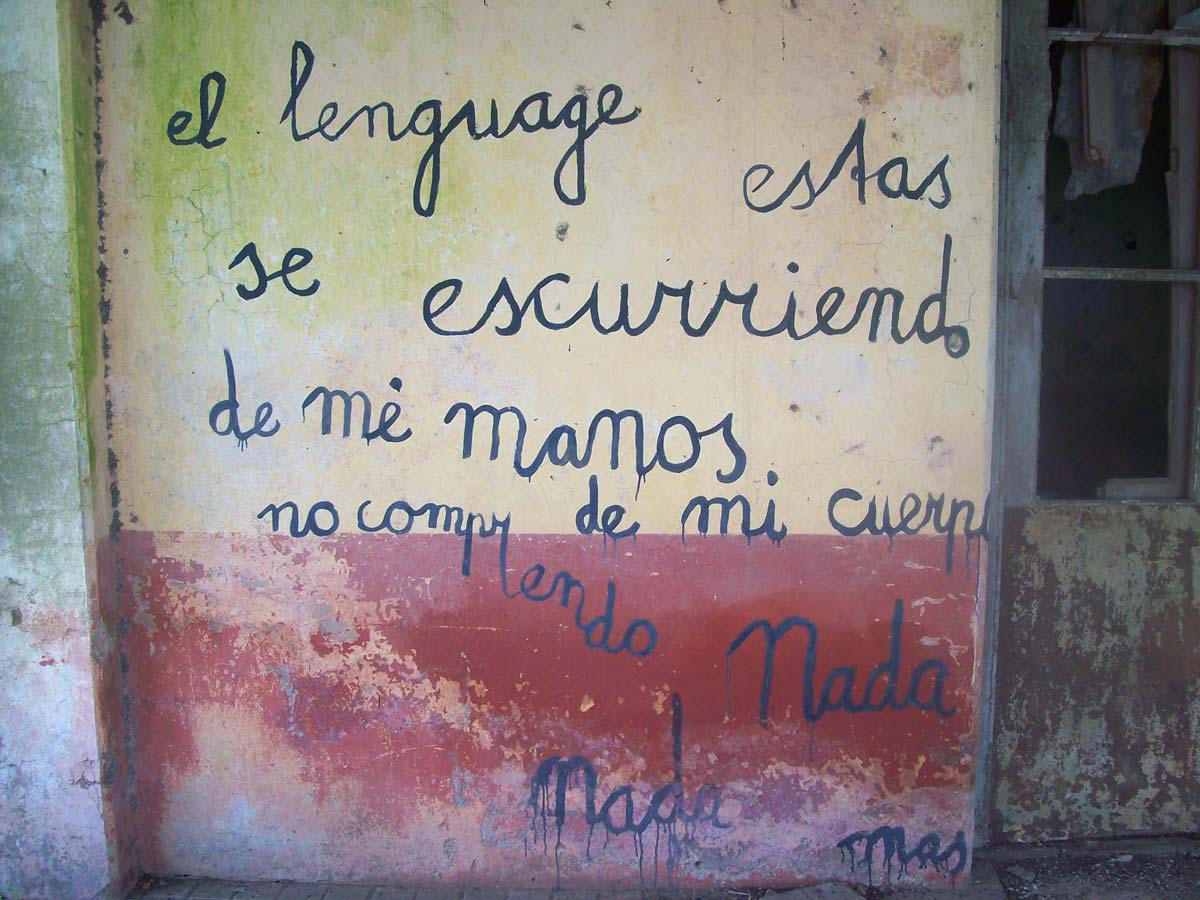 el lenguage estas
se escurriendo
de mi manos
no comprendo de mi cuerpo
Nada
Nada
mas